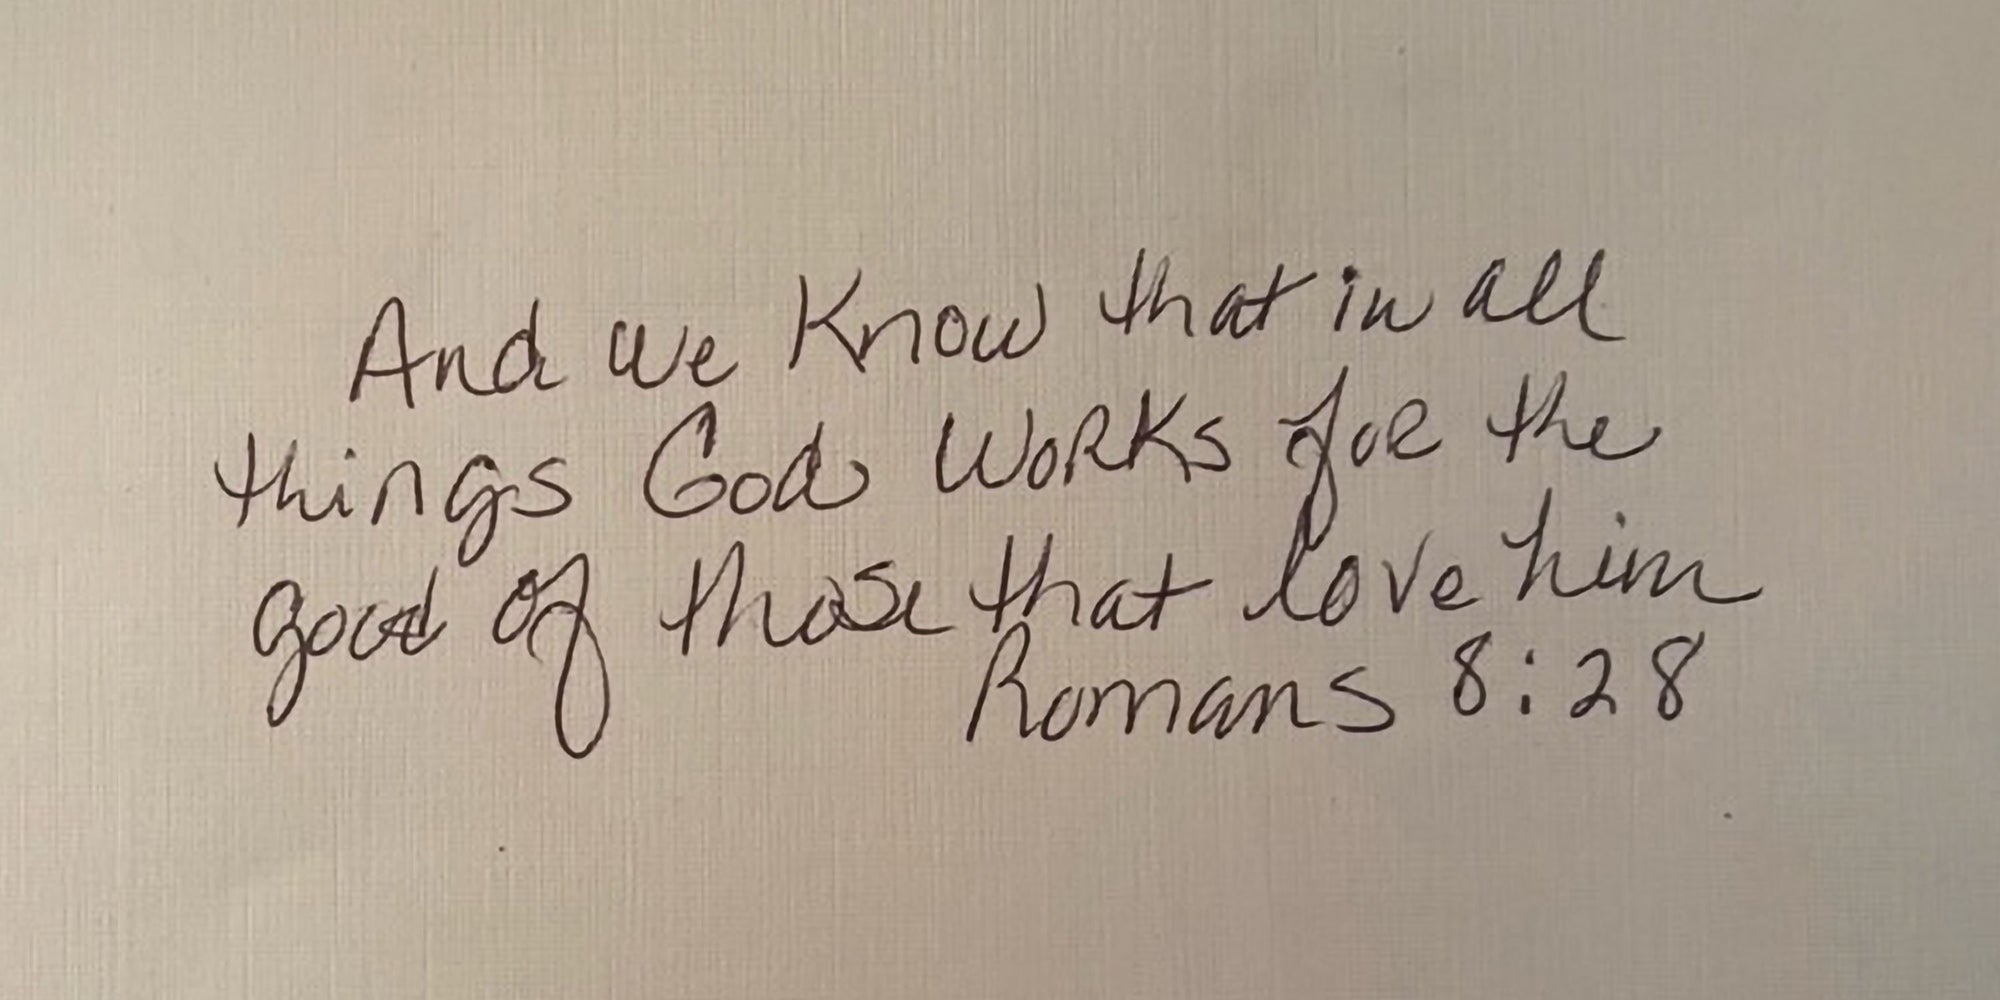 And we Know that in all
things God WoRKs foR the
good of those that love him
Romans 8:28